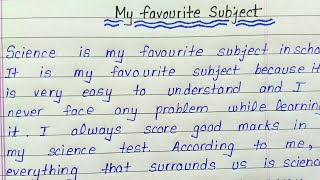 My favourite Subject
Science is my favourite subject in scho
It is my favourite subject because it
is very easy to understand and I
never face any problem while learning
it. I always score good marks in
my science test. According to me,
everything that surrounds us is scienc